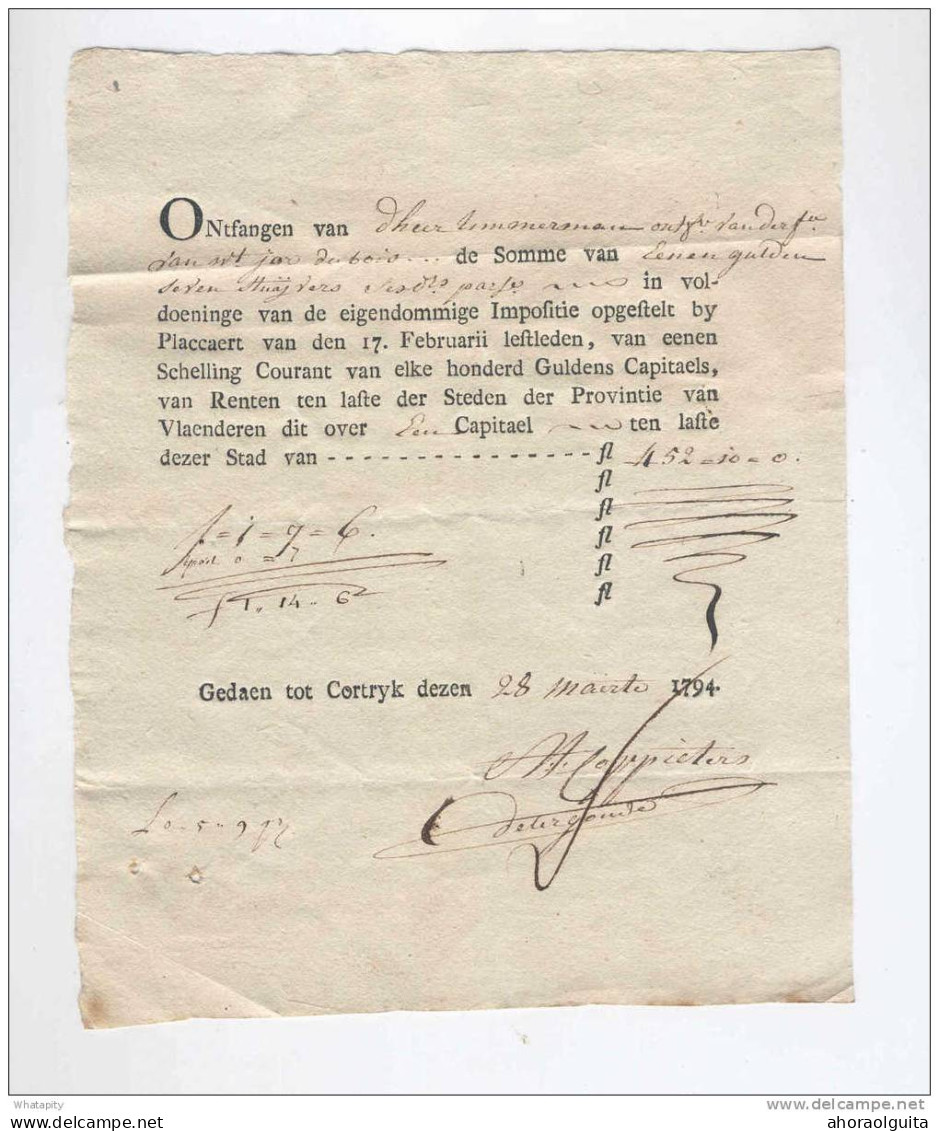 ONtfangen van dheer timmerman
van dubois de Somme van Eenen gulden
seven stuijvers in vol-
doeninge van de eigendommige Impositie opgestelt by
Placcaert van den 17. Februarii lestleden, van eenen
Schelling Courant van elke honderd Guldens Capitaels,
van Renten ten laste der Steden der Provintie van
Vlaenderen dit over Een Capitael ten laste
dezer Stad van - - - - - - - - - - - - - - - - fl 452=10=0.
fl
fl
fl
fl
fl
f=1=7=6.
0=7
f1.. 14.. 6
Gedaen tot Cortryk dezen 28 maerte 1794.
Whatapity
delcampe.net
ahoraolguita